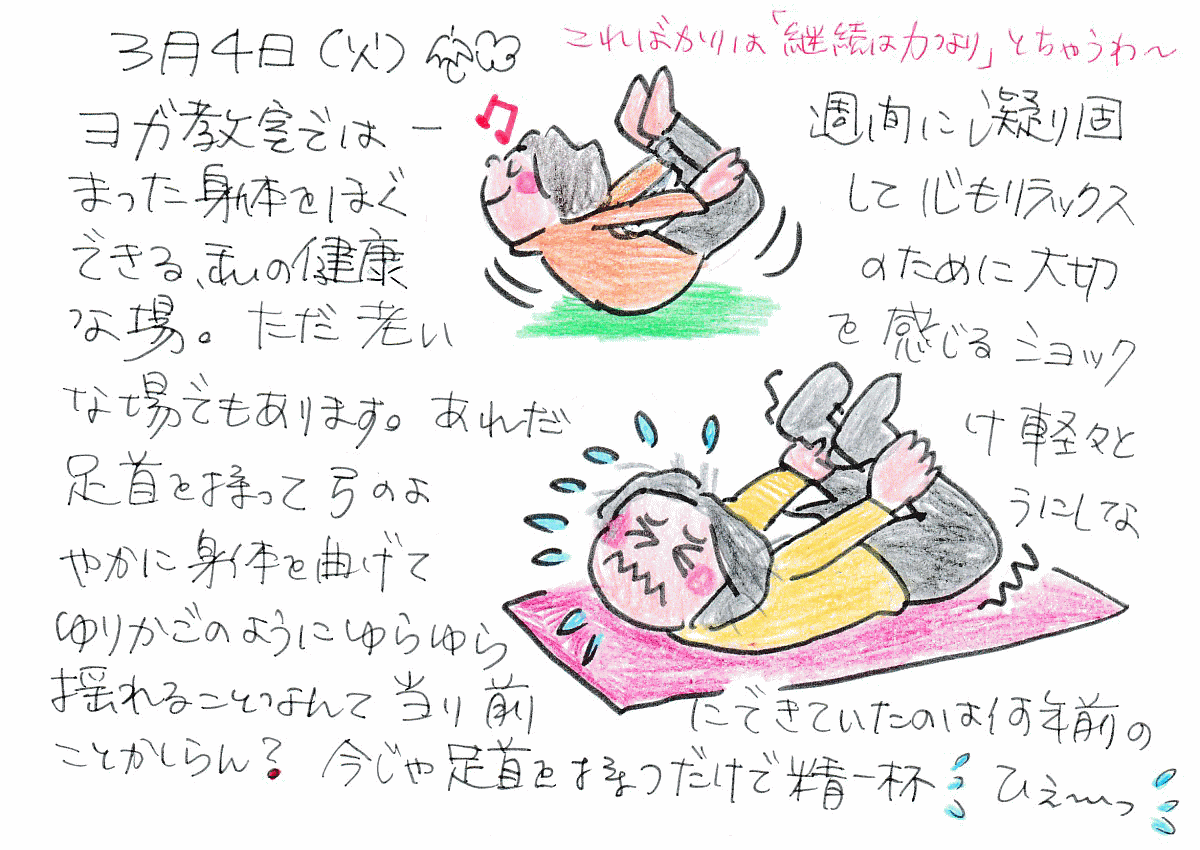 3月4日(火)
こればかりは「継続は力なり」とちゃうわ〜
ヨガ教室では一週間に凝り固
まった身体をほぐして心もリラックス
できる、私の健康のために大切
な場。ただ老いを感じるショック
な場でもあります。あれだけ軽々と
足首を持って弓のようにしな
やかに身体を曲げて
ゆりかごのようにゆらゆら
揺れることなんて当り前にできていたのは何年前の
ことかしらん? 今じゃ足首を持つだけで精一杯 ひえ〜っ